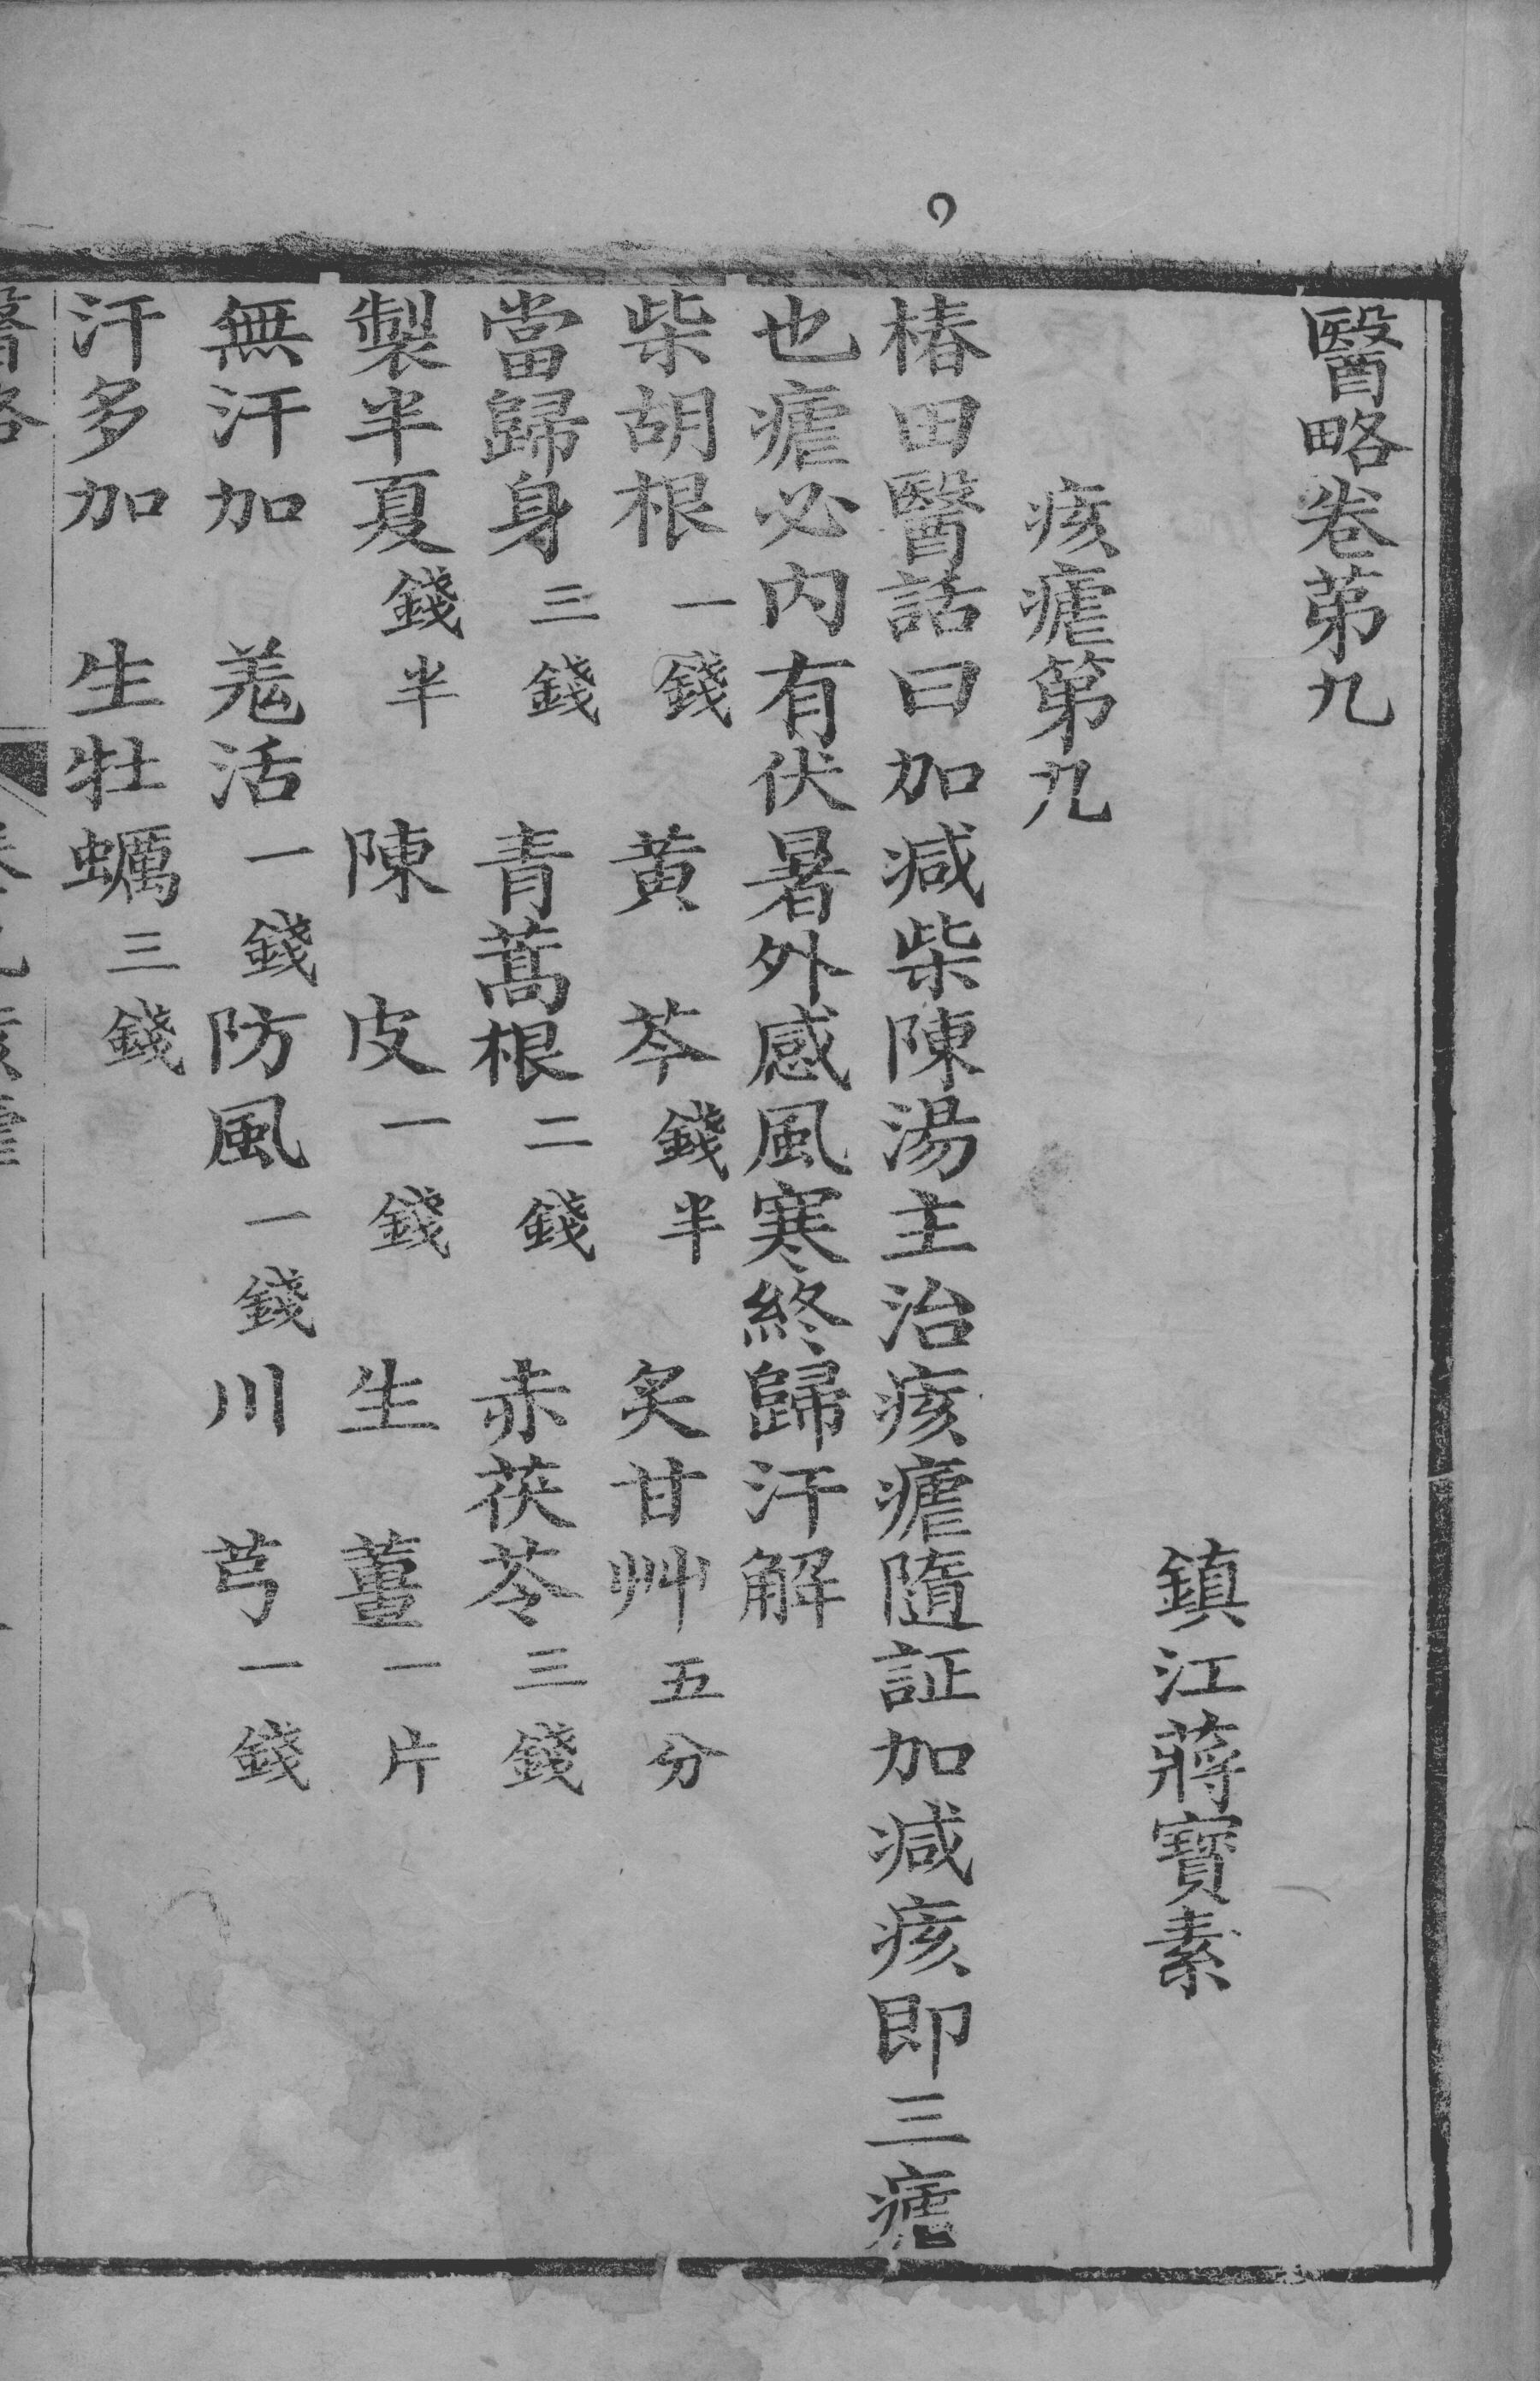 醫略卷苐九
鎮江蔣寶素
痎瘧第九
椿田醫話曰加減柴陳湯主治痎瘧隨証加減痎即三瘧
也瘧必内有伏暑外感風寒終歸汗解
柴胡根一錢 黄芩錢半 炙甘艸五分
當歸身三錢 青蒿根二錢 赤茯苓三錢
製半夏錢半 陳皮一錢 生薑一片
無汗加 羌活一錢 防風一錢 川芎一錢
汗多加 生牡蠣三錢